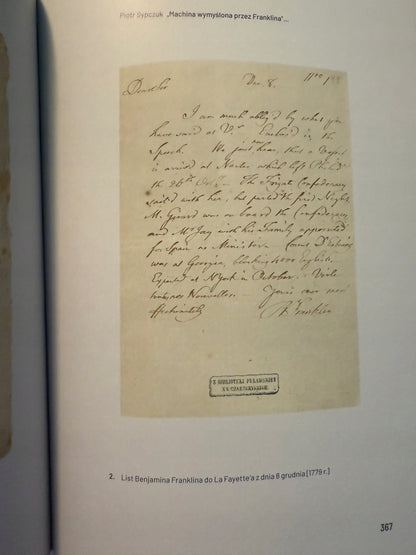 Piotr Sypczuk „Machina wymyślona przez Franklina"...
Dec. 8.
I am much oblig'd by what you
have said at
Speech. We just hear, that a Vessel
is arriv'd at Nantes which left
the 26th The Frigate Confederacy
sail'd with her, but parted the first Night.
M. Gerard was on board the Confederacy,
and Mr Jay with his Family appointed
for Spain as Minister. Count D'Estaing
was at Georgia, blocking 4000 English.
Expected at N York in October. Voila
Nouvelles. Yours ever most
affectionately
B Franklin
Z BIBLIOTEKI PUŁAWSKIEJ
XX CZARTORYSKICH.
2. List Benjamina Franklina do La Fayette'a z dnia 8 grudnia [1779 r.]
367